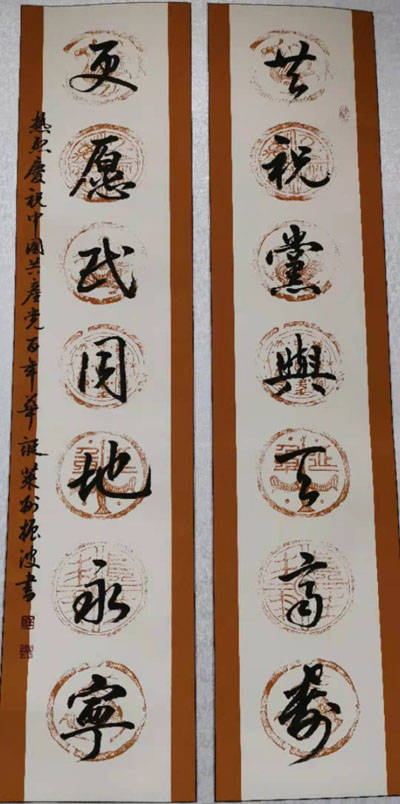 共祝黨與天齊壽
更愿民同地永寧
熱烈慶祝中國共產党百年華誕萊州振波書